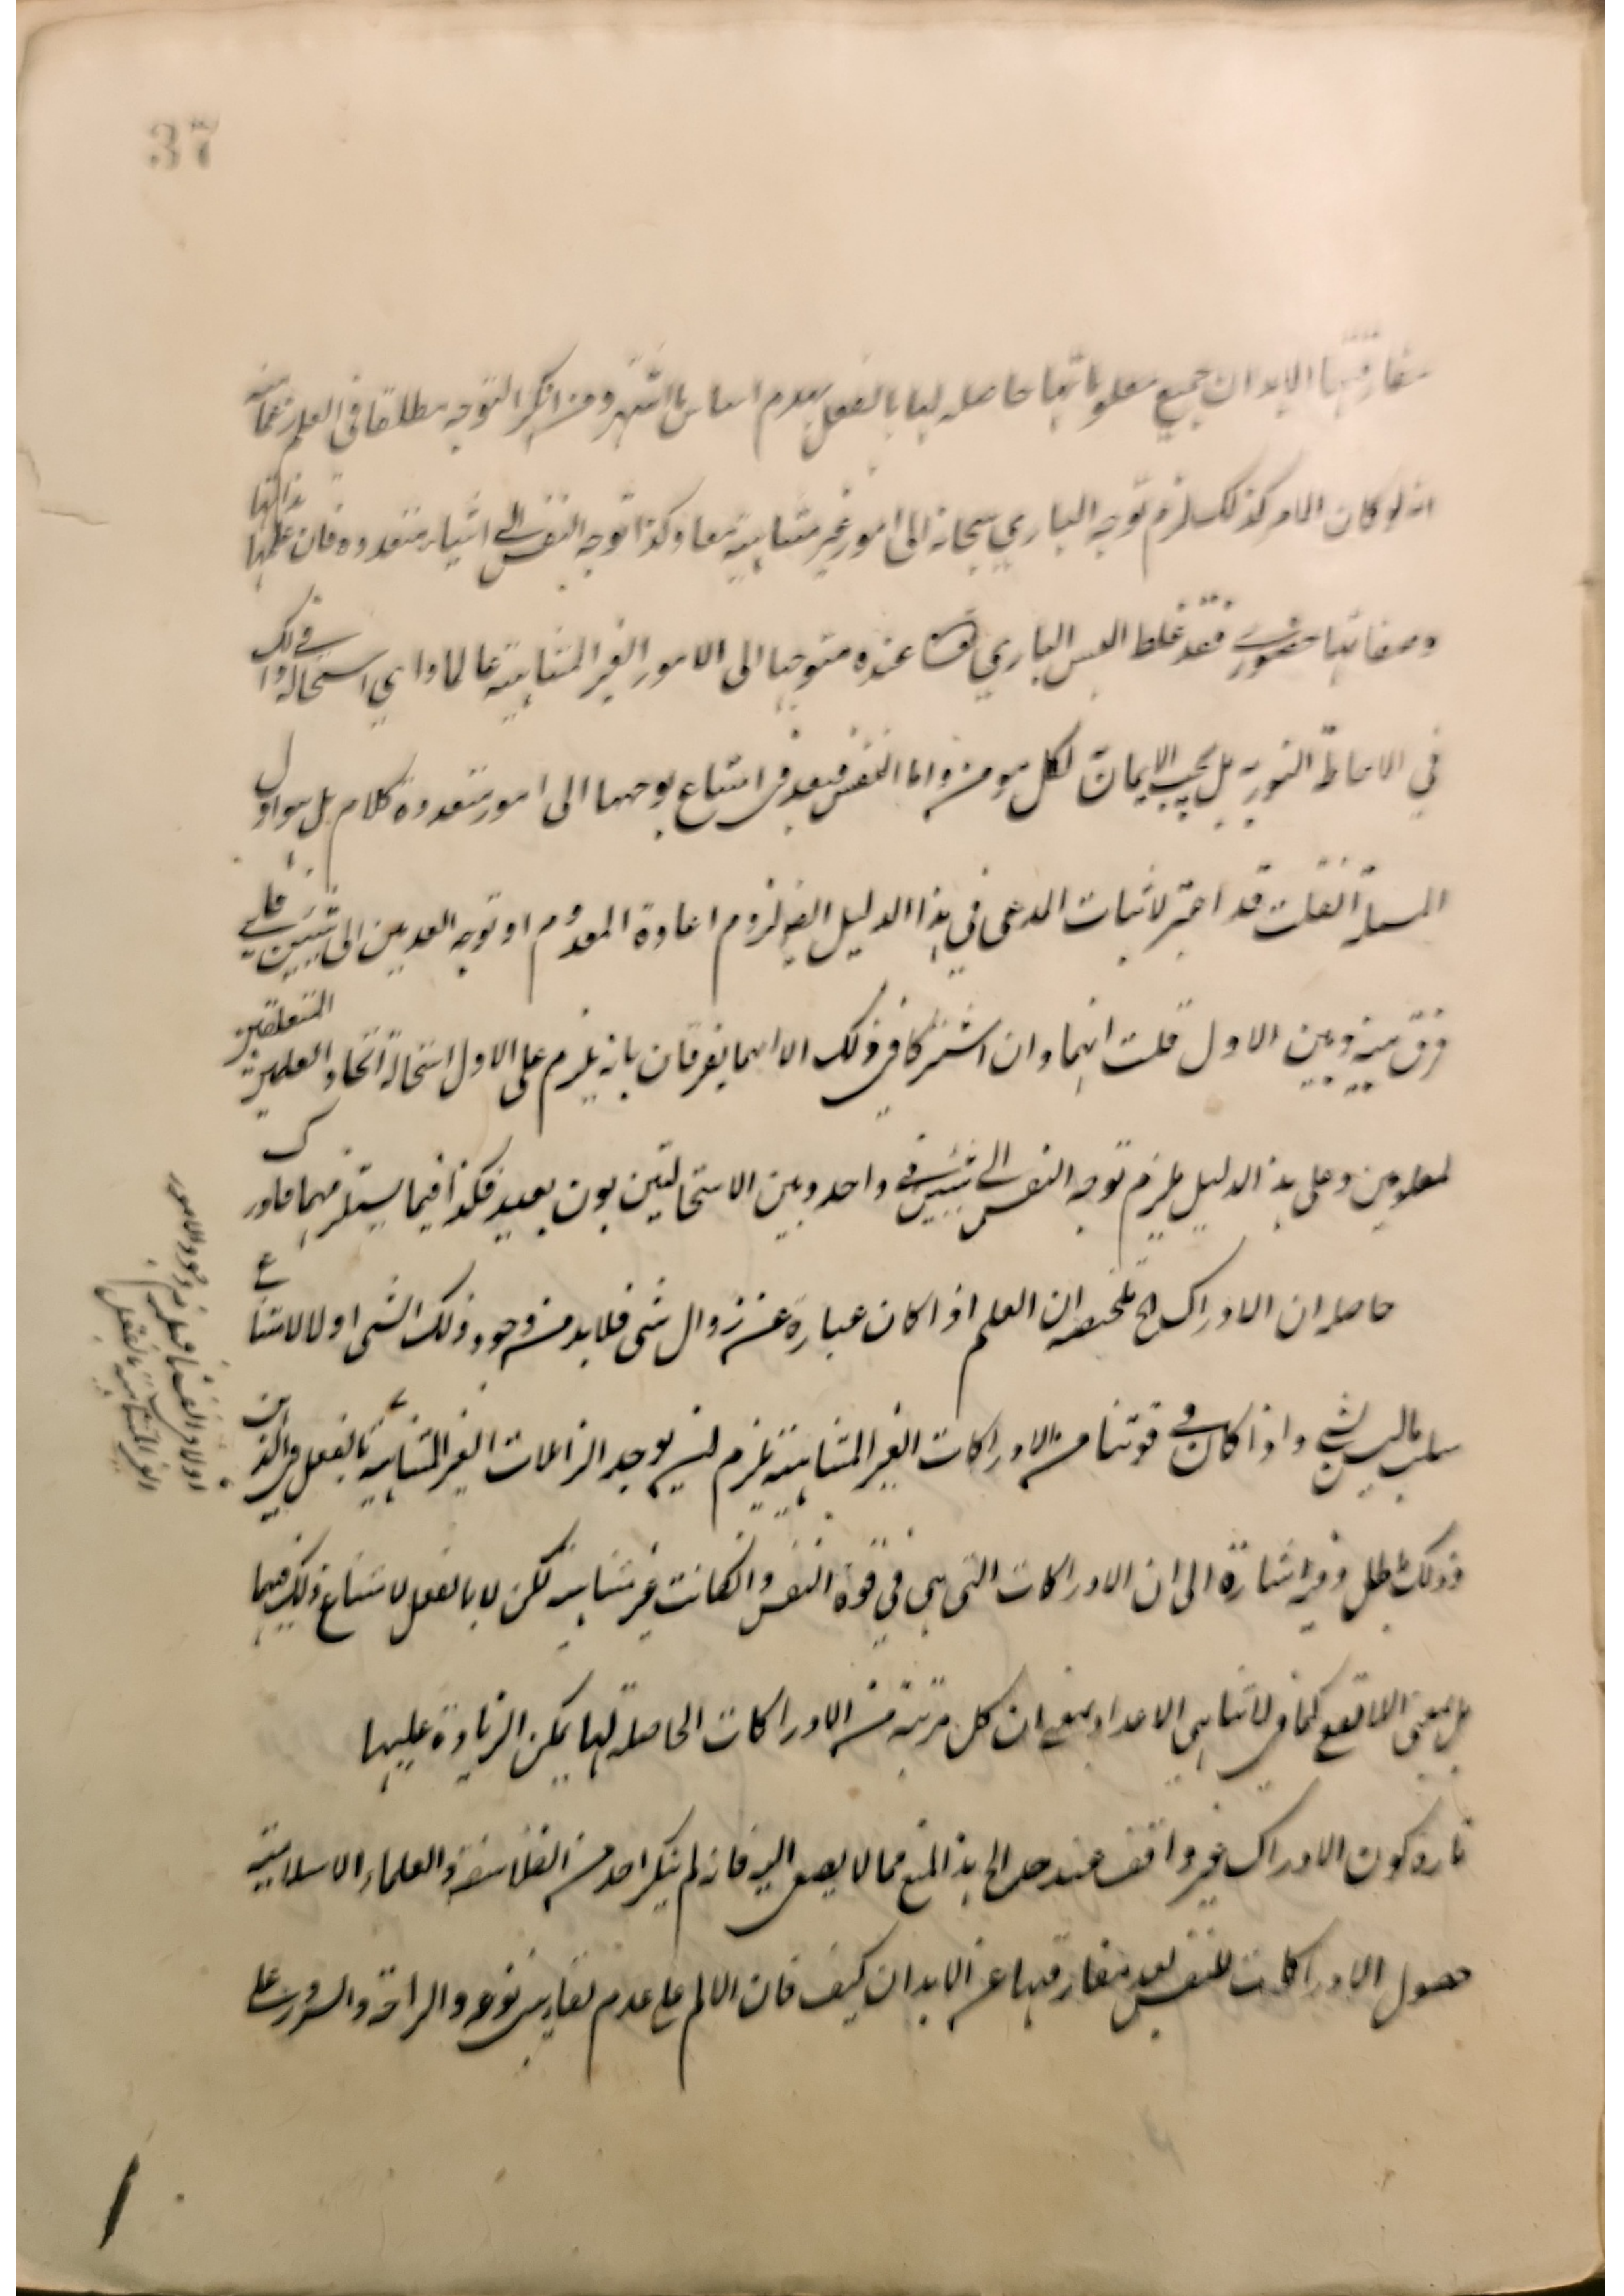 37
مفارقتها الابدان جميع معلوماتها حاصله لها بالفعل يهدم اساس ما اشتهر ومن انكر التوجه مطلقا في العلم زعما منه
انه لو كان الامر كذلك لزم توجه الباري سبحانه الى امور غير متناهية معا وكذا توجه النفس الى اشياء متعددة فان علمها بذاتها
وصفاتها حضوري فقد غلط اليس الباري عنده متوجها الى الامور الغير المتناهية عالما واي استحالة في ذلك
في الاحاطة النورية بل يجب الايمان لكل مومن واما النفس فبعد في امتناع توجهها الى امور متعددة كلام بل هو اول
المسئلة انقلت قد اعتبر لاثبات المدعى في هذا الدليل ايضا لزوم اعادة المعدوم او توجه العدمين الى شيئين فاي
فرق بينه وبين الاول قلت انهما وان اشتركا في ذلك الا انهما يفرقان بانه يلزم على الاول استحالة اتحاد العلمين المتعلقين
لمعلومين وعلى هذا الدليل يلزم توجه النفس الى شيئين في واحد وبين الاستحالتين بون بعيد فكذا فيما يستلزمهما فادرك
حاصله ان الادراك الخ تلخيصه ان العلم اذا كان عبارة عن زوال شئ فلا بد من وجود ذلك الشئ اولا لامتناع
سلب ما ليس بشئ واذا كان في قوتنا من الادراكات الغير المتناهية يلزم ان يوجد الزائلات الغير المتناهية بالفعل في الذهن
وذلك باطل وفيه اشارة الى ان الادراكات التي هي في قوة النفس وانكانت غير متناهية لكن لا بالفعل لامتناع ذلك فيها
بل بمعنى اللاتقف كما في لاتناهي الاعداد بمعنى ان كل مرتبة من الادراكات الحاصلة لها يمكن الزيادة عليها
كون الادراك غير واقف عند حد الخ هذا المنع مما لا يصغى اليه فانه لم ينكر احد من الفلاسفة والعلماء الاسلامية
حصول الادراكات للنفس بعد مفارقتها عن الابدان كيف فان الالم على عدم والراحة والسرور على
الغير المتناهية بالفعل